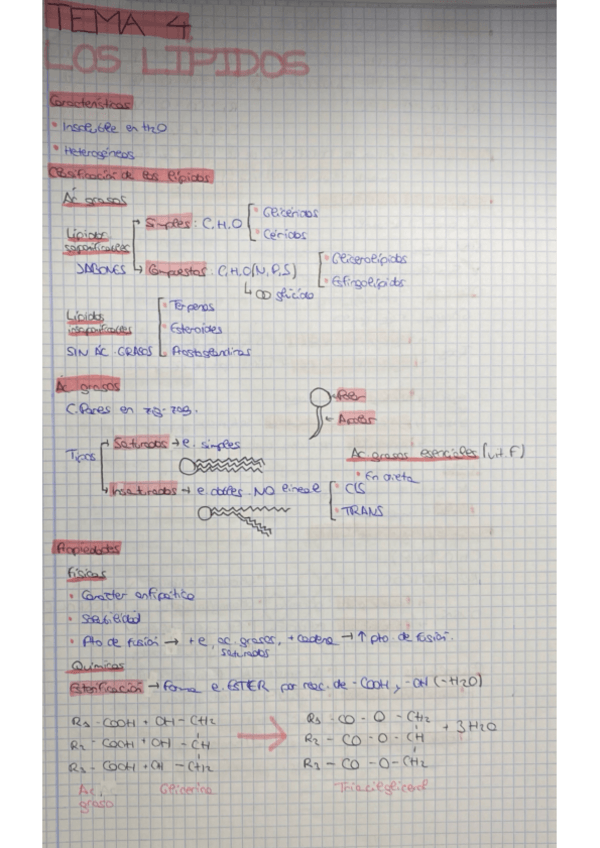 TEMA 4
LOS LÍPIDOS
Características
• Insoluble en H2O
• Heterogéneos
Clasificación de los lípidos
Ác grasos
Lípidos saponificables
JABONES
Simples: C,H,O
• Glicéridos
• Céridos
Compuestos: C,H,O(N,P,S)
glúcido
• Glicerolípidos
• Esfingolípidos
Lípidos insaponificables
SIN ÁC. GRASOS
• Terpenos
• Esteroides
• Prostaglandinas
Ác grasos
C.Pares en
Tipos
Saturados → e. simples
Insaturados → e. dobles. NO lineal
• CIS
• TRANS
Ac. grasos esenciales (vit. F)
• En dieta
Propiedades
Físicas
• Carácter anfipático
• Solubilidad
• Pto de fusión → + e, ac. grasos, + cadena → ↑ pto. de fusión.
saturados
Químicas
Esterificación → Forma e. ESTER por reac. de -COOH y -OH (-H2O)
R1 - COOH + OH - CH2
R2 - COOH + OH - CH
R3 - COOH + OH - CH2
Ac. graso
Glicerina
R1 - CO - O - CH2
R2 - CO - O - CH + 3H2O
R3 - CO - O - CH2
Triacilglicerol